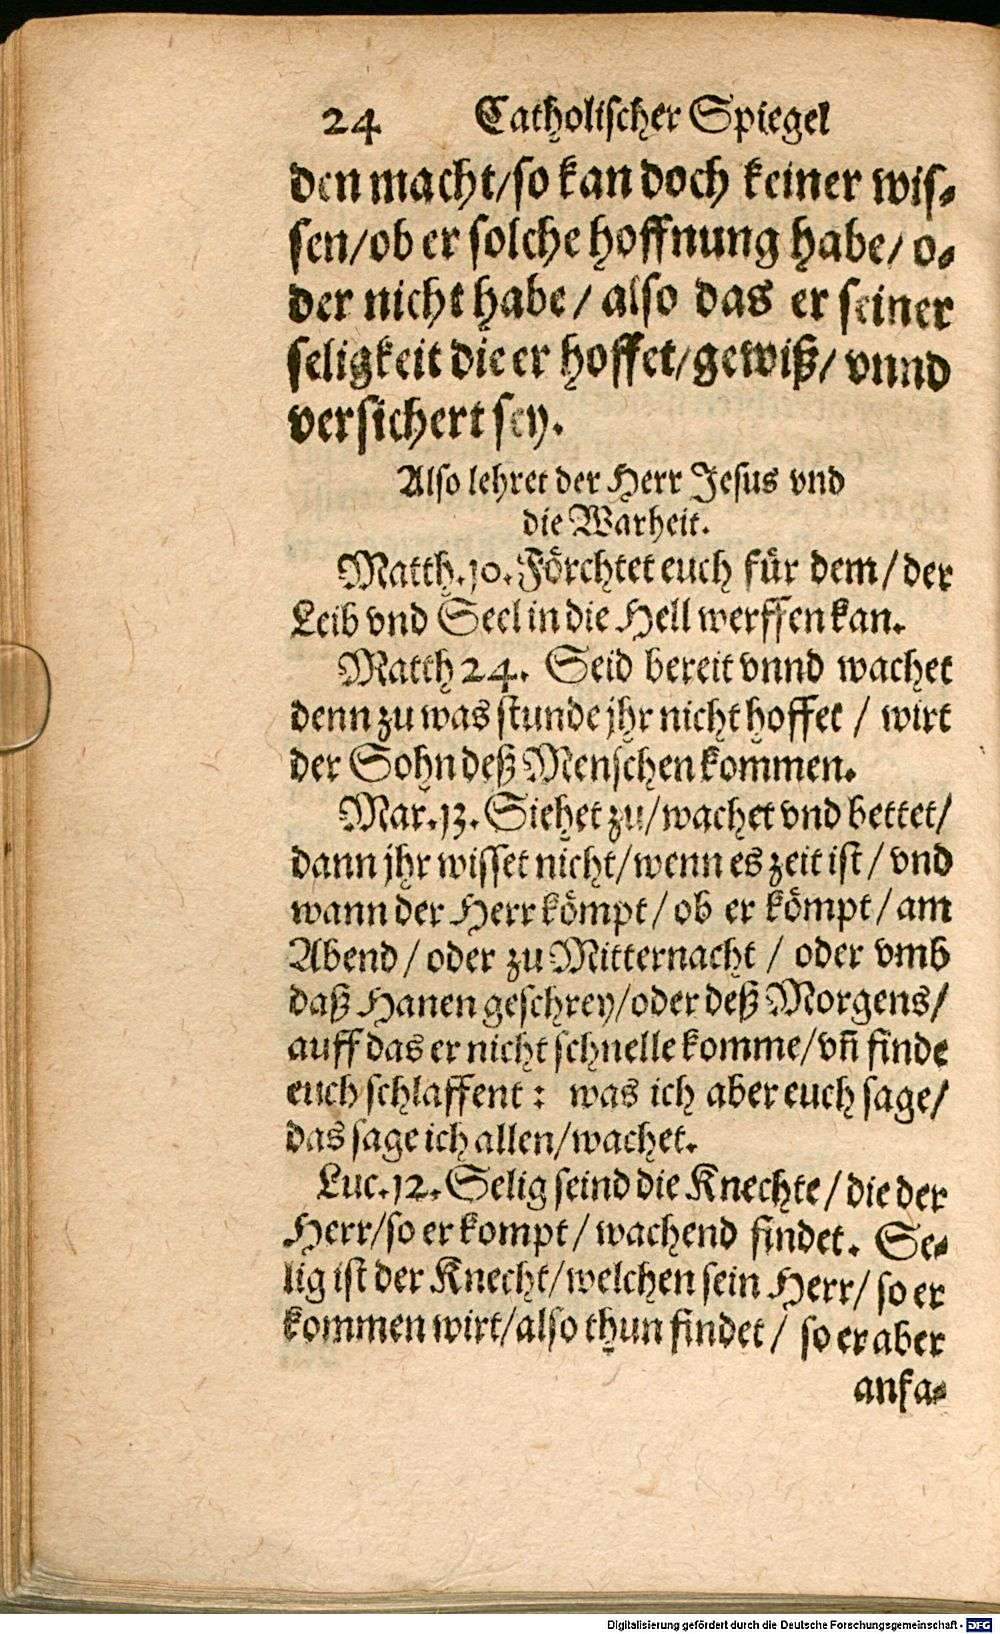 24 Catholischer Spiegel
den macht/so kan doch keiner wis-
sen/ob er solche hoffnung habe/ o-
der nicht habe/ also das er seiner
seligkeit die er hoffet/gewiß/ vnnd
versichert sey.
Also lehret der Herr Jesus vnd
die Warheit.
Matth.10. Förchtet euch für dem/der
Leib vnd Seel in die Hell werffen kan.
Matth 24. Seid bereit vnnd wachet
denn zu was stunde jhr nicht hoffet / wirt
der Sohn deß Menschen kommen.
Mar.13. Siehet zu/wachet vnd bettet/
dann jhr wisset nicht/wenn es zeit ist/ vnd
wann der Herr kömpt/ ob er kömpt/ am
Abend / oder zu Mitternacht / oder vmb
daß Hanen geschrey/oder deß Morgens/
auff das er nicht schnelle komme/vñ finde
euch schlaffent: was ich aber euch sage/
das sage ich allen/wachet.
Luc.12. Selig seind die Knechte/ die der
Herr/so er kompt/ wachend findet. Se-
lig ist der Knecht/welchen sein Herr/ so er
kommen wirt/also thun findet/ so er aber
anfa-
Digitalisierung gefördert durch die Deutsche Forschungsgemeinschaft - DFG